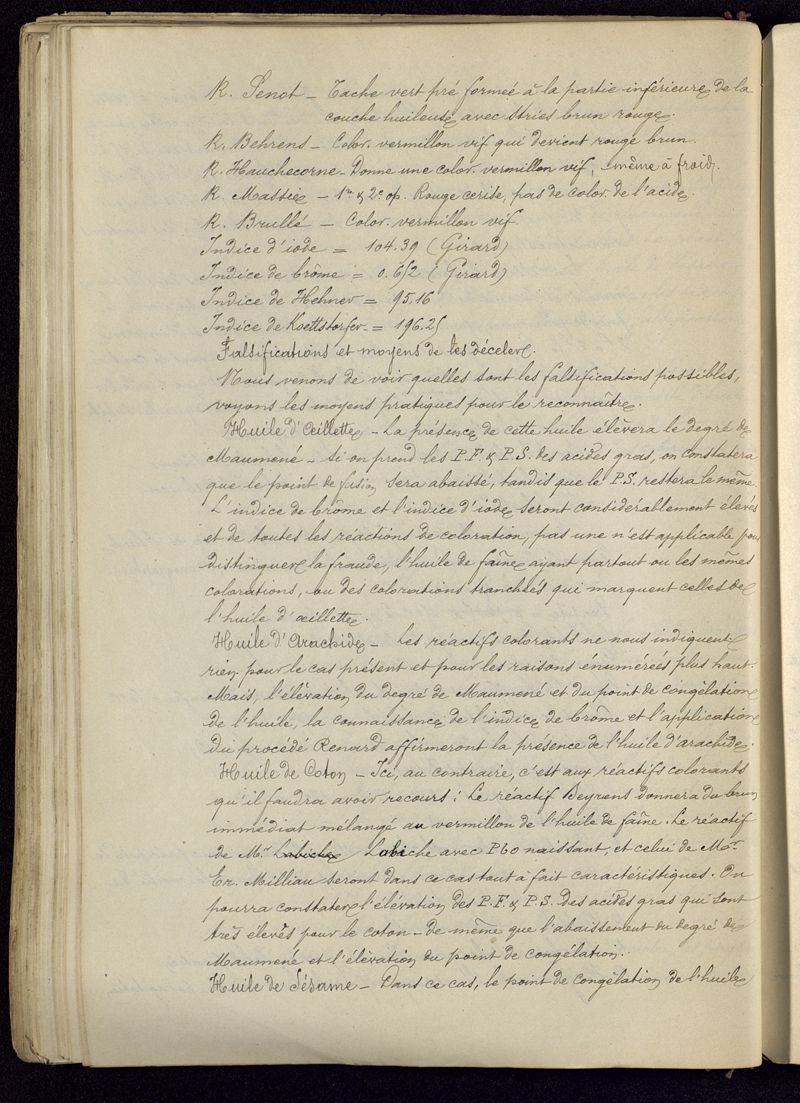 R. Penot – Tache vert pré formeé à la partie inférieure de la
couche huileuse avec stries brun rouge.
R. Behrens – Color. vermillon vif qui devient rouge brun.
R. Hauchecorne – Donne une color. vermillon vif, même à froid.
R. Massie – 1re & 2e op. Rouge cerise, pas de color. de l'acide.
R. Brullé – Color. vermillon vif
Indice d'iode = 104.39 (Girard)
Indice de brôme = 0.652 (Girard)
Indice de Hehner = 95.16
Indice de Koettstorfer = 196.25
Falsifications et moyens de les déceler.
Nous venons de voir quelles sont les falsifications possibles,
voyons les moyens pratiques pour le reconnaître.
Huile d'Œillette – La présence de cette huile élèvera le degré de
Maumené – Si on prend les P.F. & P.S. des acides gras, on constatera
que le point de fusion sera abaissé, tandis que le P.S. restera le même
L'indice de brôme et l'indice d'iode seront considérablement élevés
et de toutes les réactions de coloration, pas une n'est applicable pour
distinguer la fraude, l'huile de faîne ayant partout ou les mêmes
colorations, ou des colorations tranchées qui marquent celles de
l'huile d'œillette.
Huile d'Arachide – Les réactifs colorants ne nous indiquent
rien pour le cas présent et pour les raisons énumérées plus haut.
Mais, l'élévation du degré de Maumené et du point de congélation
de l'huile, la connaissance de l'indice de brôme et l'application
du procédé Renard affirmeront la présence de l'huile d'arachide.
Huile de Coton – Ici, au contraire, c'est aux réactifs colorants
qu'il faudra avoir recours : Le réactif Beyrens donnera du brun
immédiat mélangé au vermillon de l'huile de faîne. Le réactif
de Mr Labiche Labiche avec PbO naissant, et celui de Mr
Er. Milliau seront dans ce cas tout à fait caractéristiques. On
pourra constater l'élévation des P.F. & P.S. des acides gras qui sont
très élevés pour le coton – de même que l'abaissement du degré de
Maumené et l'élévation du point de congélation.
Huile de Sésame – Dans ce cas, le point de congélation de l'huile